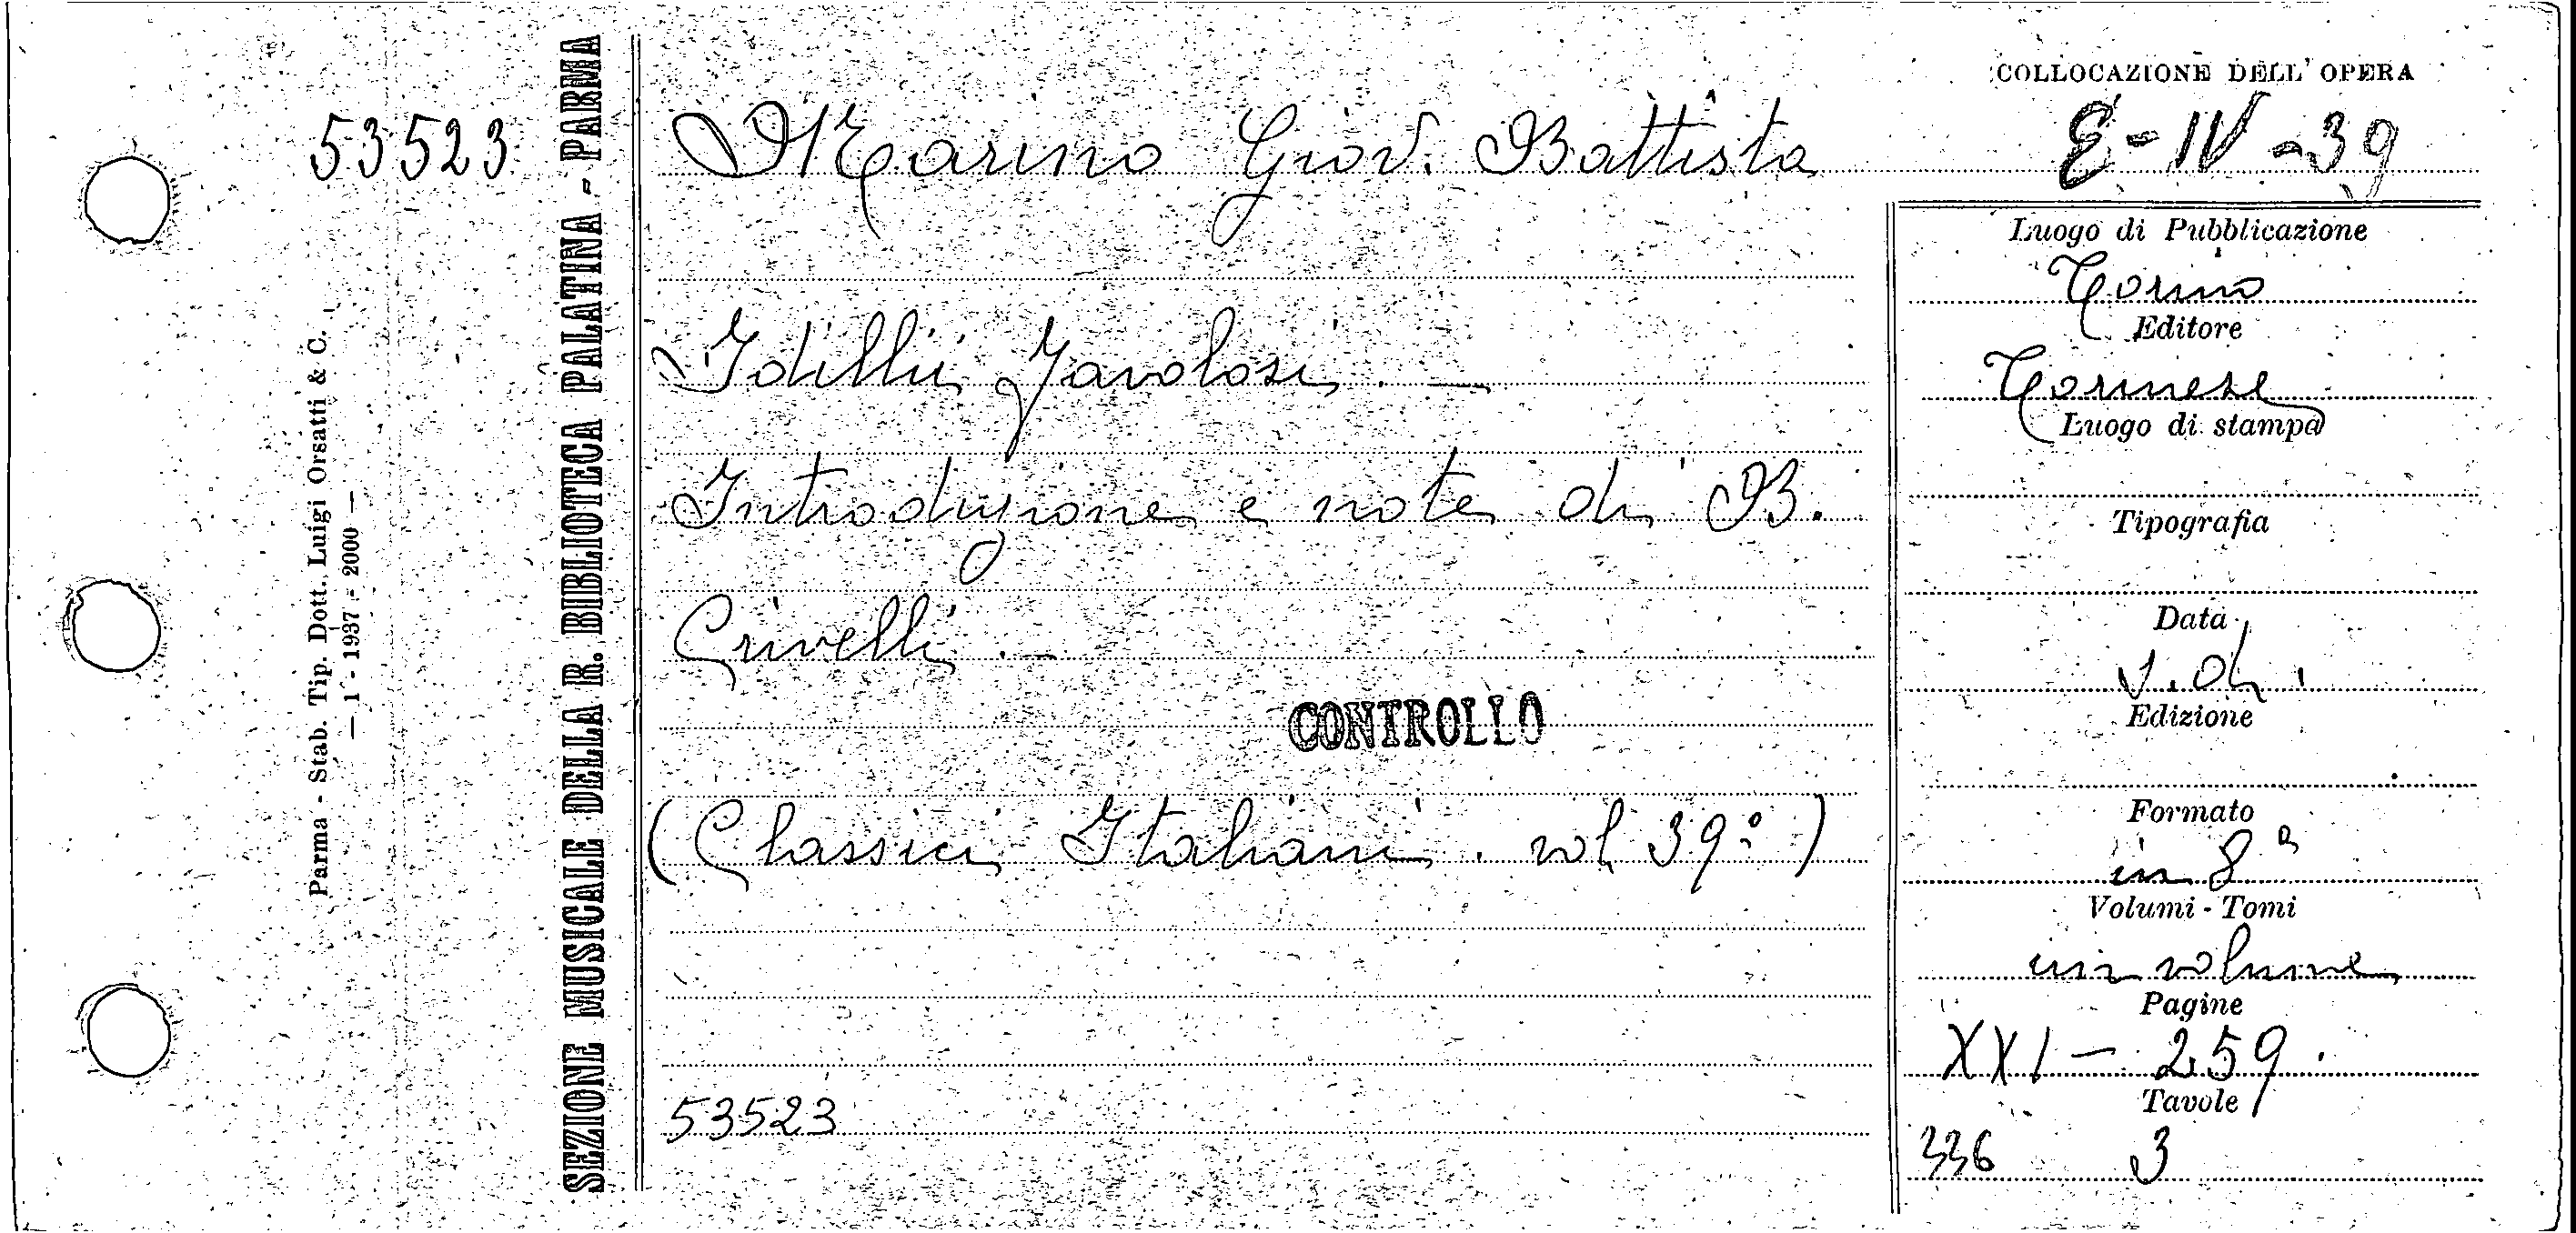 53523
Parma - Stab. Tip. Dott. Luigi Orsatti & C.
— 1 - 1937 - 2000 —
SEZIONE MUSICALE DELLA R. BIBLIOTECA PALATINA - PARMA
Marino Giov. Battista
Idilli favolosi. —
Introduzione e note di B.
Crivelli. —
CONTROLLO
(Classici Italiani. vol 39°)
53523
COLLOCAZIONE DELL' OPERA
E - IV - 39
Luogo di Pubblicazione
Torino
Editore
Torinese
Luogo di stampa
Tipografia
Data
s. d.
Edizione
Formato
in 8°
Volumi - Tomi
un volume
Pagine
XXI - 259.
Tavole
336 3